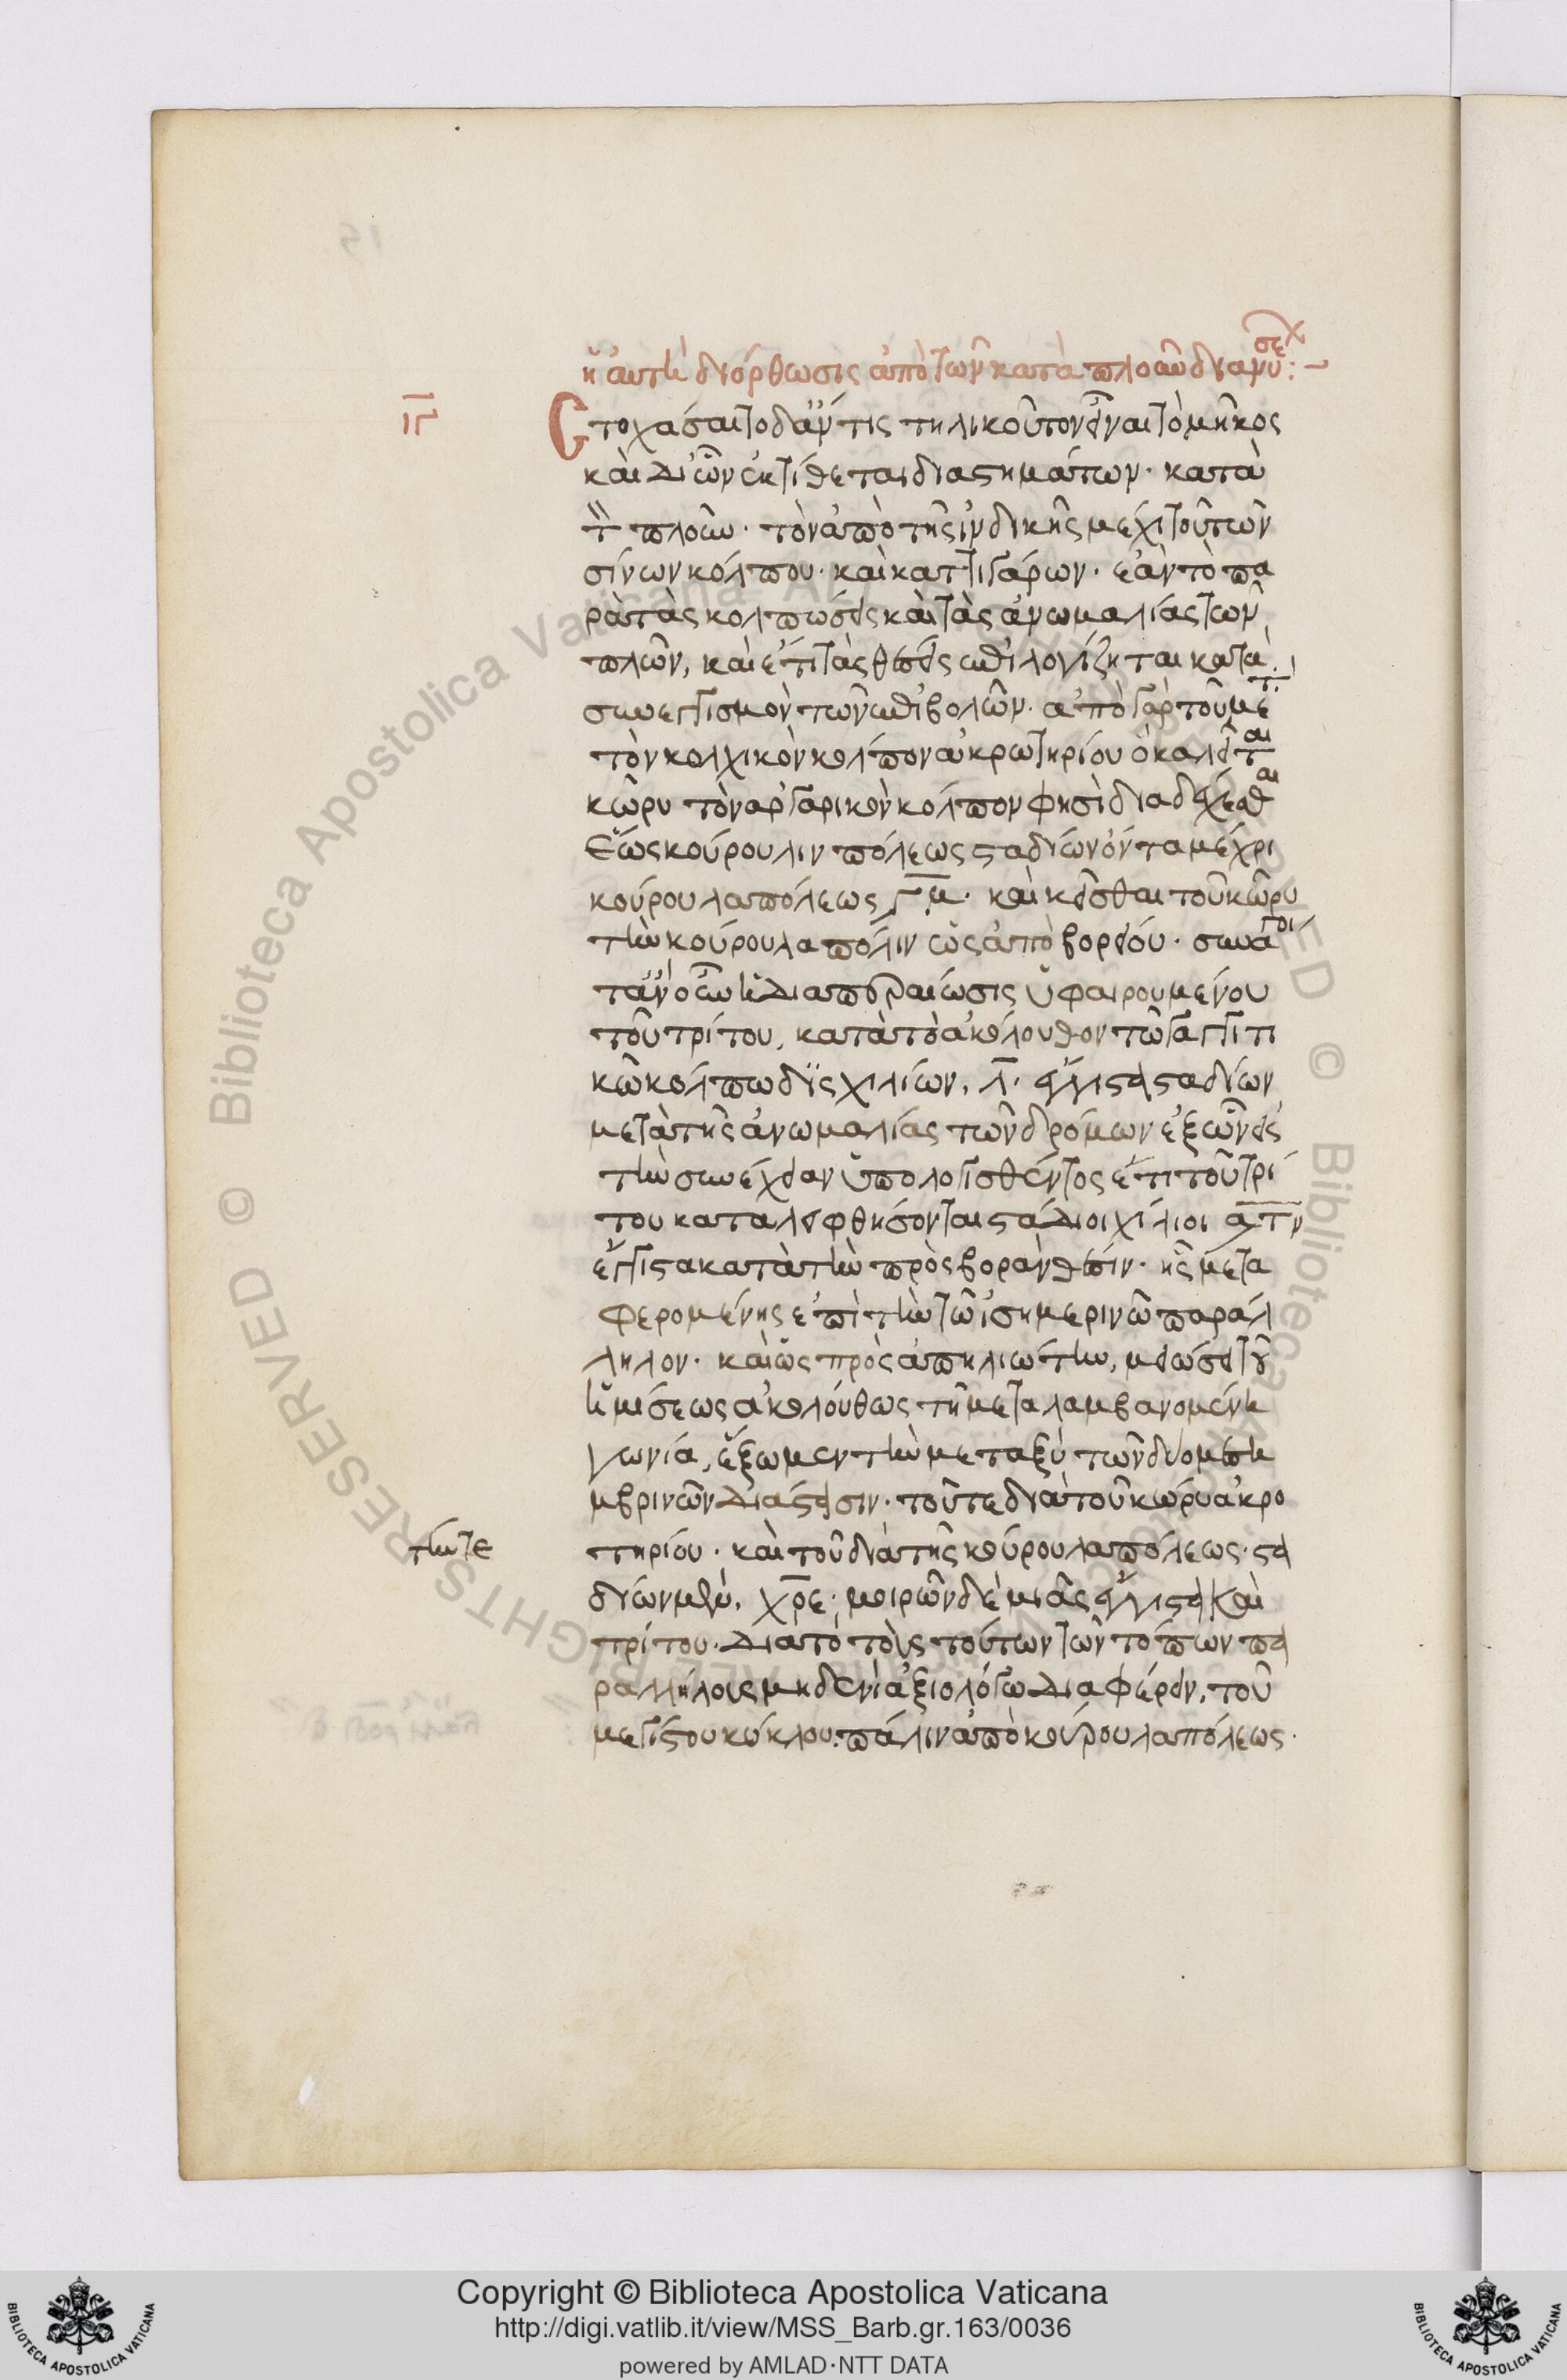 ἡ αὐτὴ διόρθωσις ἀπὸ τῶν κατὰ πλοῦν διανύσεων:~
ιγ
Στοχάσαιτο δ' ἄν τις τηλικοῦτον εἶναι τὸ μῆκος
καὶ δι' ὧν ἐκτίθεται διαστημάτων· κατὰ
τὸν πλοῦν· τὸν ἀπὸ τῆς ἰνδικῆς μέχρι τοῦ τῶν
σίνων κόλπου· καὶ κατιγάρων· ἐὰν τὸ πα
ρὰ τὰς κολπώσεις καὶ τὰς ἀνωμαλίας τῶν
πλῶν, καὶ ἔτι τὰς θέσεις ἐπιλογίζηται κατὰ
συνεγγισμὸν τῶν ἐπιβολῶν· ἀπὸ γὰρ τοῦ μετὰ
τὸν κολχικὸν κόλπον ἀκρωτηρίου ὃ καλεῖται
κῶρυ τὸν ἀργαρικὸν κόλπον φησὶ διαδέχεσθαι
ἕως κούρουλιν πόλεως σταδίων ὄντα μέχρι
κούρουλα πόλεως ͵γμ· καὶ κεῖσθαι τοῦ κῶρυ
τὴν κούρουλα πόλιν ὡς ἀπὸ βορείου· συνάγοι
τ' ἂν οὖν ἡ διαπεραίωσις ὑφαιρουμένου
τοῦ τρίτου, κατὰ τὸ ἀκόλουθον τῷ γαγγιτι
κῷ κόλπῳ δισχιλίων, λ. ἔγγιστα σταδίων
μετὰ τῆς ἀνωμαλίας τῶν δρόμων ἐξ ὧν εἰς
τὴν συνέχειαν ὑπολογισθέντος ἔτι τοῦ τρί
του καταλειφθήσονται στάδιοι χίλιοι ͵ατν
ἔγγιστα κατὰ τὴν πρὸς βορρὰν θέσιν· ἧς μετα
φερομένης ἐπὶ τὴν τῷ ἰσημερινῷ παράλ
ληλον· καὶ ὡς πρὸς ἀπηλιώτην, μειώσει τῇ
ἡμίσεως ἀκολούθως τῇ μεταλαμβανομένῃ
γωνίᾳ, ἕξομεν τὴν μεταξὺ τῶν δύο μεση
μβρινῶν διάστασιν· τοῦ τε διὰ τοῦ κώρυ ἀκρο
τὴν τε
τηρίου· καὶ τοῦ διὰ τῆς κούρουλα πόλεως· στα
δίων μὲν, χοε· μοιρῶν δὲ μιᾶς ἔγγιστα καὶ
τρίτου· διὰ τὸ τοὺς τούτων τῶν τόπων πα
ραλλήλους μηδενὶ ἀξιολόγῳ διαφέρειν, τοῦ
μεγίστου κύκλου. πάλιν ἀπὸ κούρουλα πόλεως·
Copyright © Biblioteca Apostolica Vaticana
http://digi.vatlib.it/view/MSS_Barb.gr.163/0036
powered by AMLAD·NTT DATA